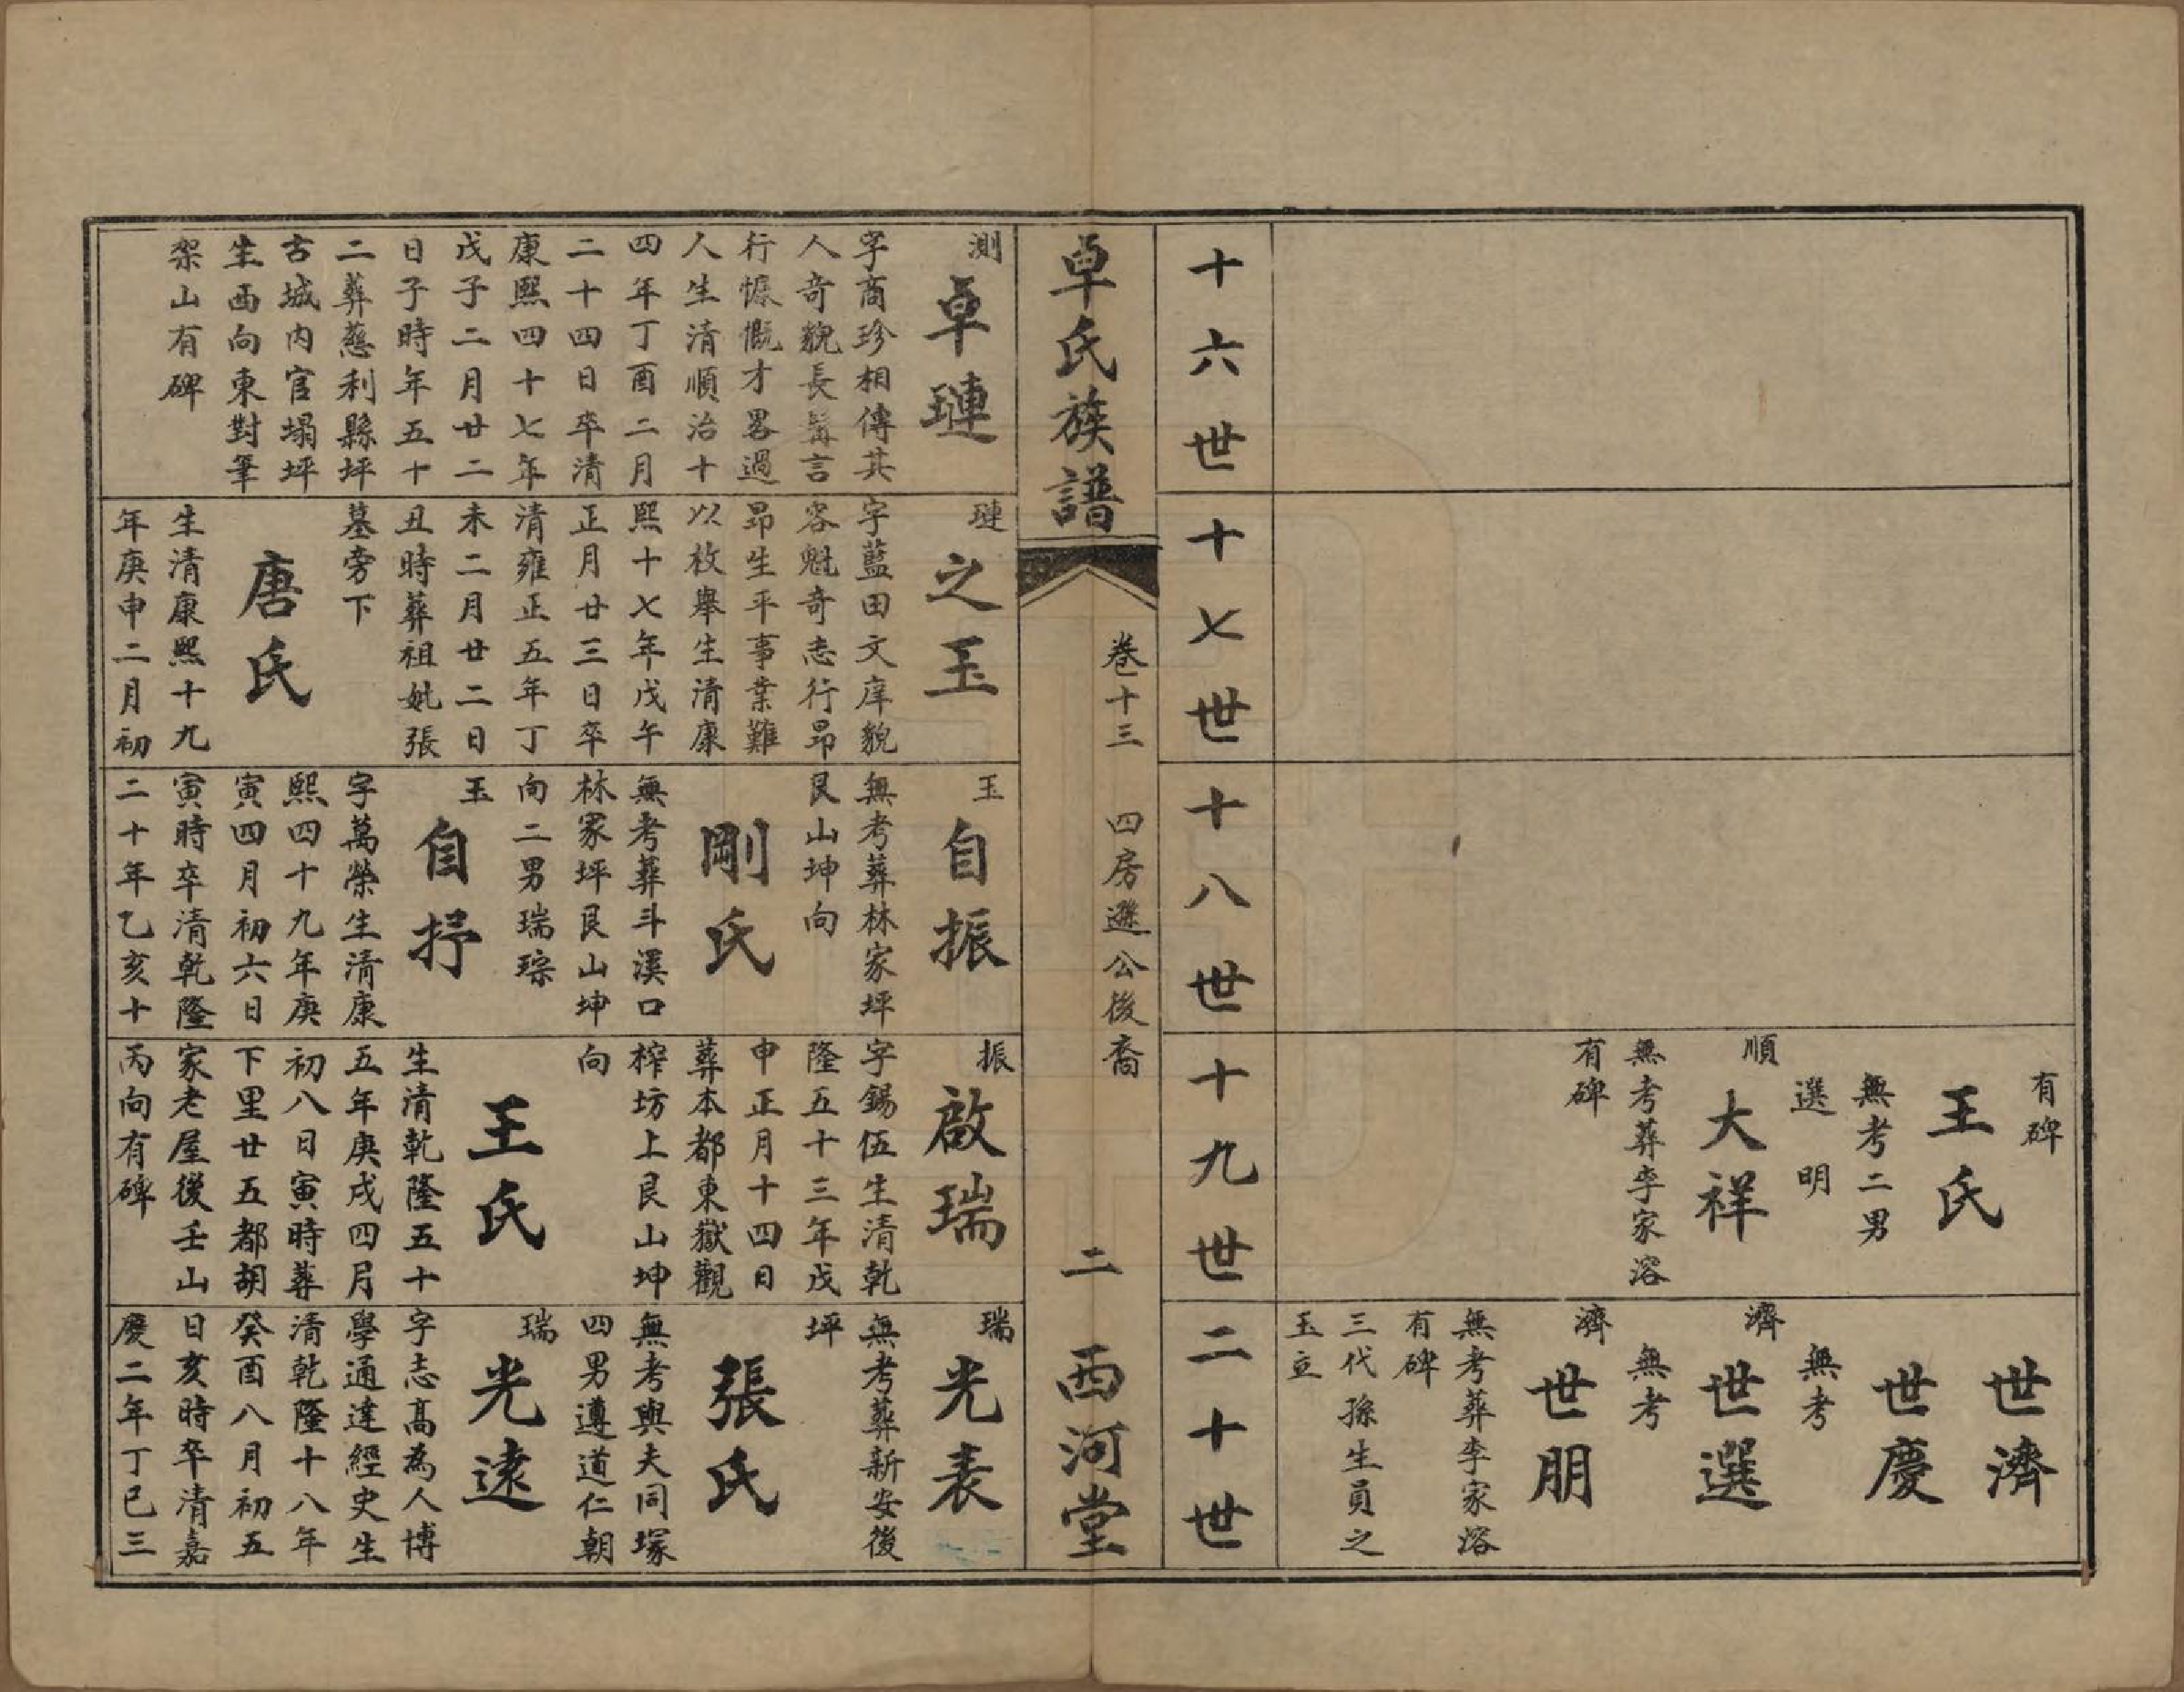 十六世
十七世
十八世
十九世
二十世
有碑
王氏
無考二男
選明
順
大祥
無考葬李家溶
有碑
世濟
世慶
無考
濟
世選
無考
濟
世朋
無考葬李家溶
有碑
三代孫生員之
玉立
卓氏族譜
卷十三 四房遜公後裔
二
西河堂
測
卓璉
字商珍相傳其
人奇貌長髯言
行慷慨才畧過
人生清順治十
四年丁酉二月
二十四日卒清
康熙四十七年
戊子二月廿二
日子時年五十
二葬慈利縣坪
古城內官塌坪
生西向東對筆
架山有碑
璉
之玉
字藍田文庠貌
容魁奇志行昂
昂生平事業難
以枚舉生清康
熙十七年戊午
正月廿三日卒
清雍正五年丁
未二月廿二日
丑時葬祖妣張
墓旁下
唐氏
生清康熙十九
年庚申二月初
玉
自振
無考葬林家坪
艮山坤向
剛氏
無考葬斗溪口
林家坪艮山坤
向二男瑞琮
玉
自抒
字萬榮生清康
熙四十九年庚
寅四月初六日
寅時卒清乾隆
二十年乙亥十
振
啟瑞
字錫伍生清乾
隆五十三年戊
申正月十四日
葬本都東嶽觀
榨坊上艮山坤
向
王氏
生清乾隆五十
五年庚戌四月
初八日寅時葬
下里廿五都胡
家老屋後壬山
丙向有碑
瑞
光表
無考葬新安後
坪
張氏
無考與夫同塚
四男遵道仁朝
瑞
光逮
字志高為人博
學通達經史生
清乾隆十八年
癸酉八月初五
日亥時卒清嘉
慶二年丁巳三